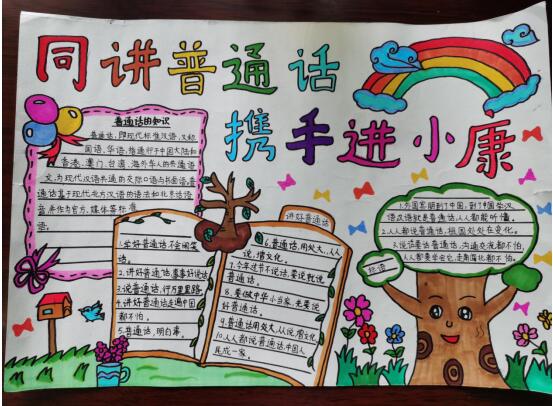 同讲普通话
携手进小康
普通话的知识
普通话,即现代标准汉语,又称
国语、华语,指通行于中国大陆和
香港、澳门、台湾、海外华人的共通语
文,为现代汉语共通的交际口语与书面语。普
通话基于现代北方汉语的语法和北京话语
音,来作为官方、媒体等标准
语。
讲好普通话
1.学好普通话不会闹笑
话。
2.讲好普通话,事事好说话
3.说普通话,行万里路
4.讲好普通话走遍中国
都不怕。
5.普通话,明白事。
6.普通话,用处大,人人
说,增文化。
7.今年过节不说话,要说就说
普通话。
8.要做中华小当家,先要说
好普通话。
9.普通话用处大,人人说增文化
10.人人都说普通话,中国人
民成一家。
1.外国客朋到了中国,到了中国学汉
语汉语就是普通话,人人都能听懂。
2.人人都说普通话,祖国处处在变化。
3.说话要话普通话,沟通交流都不怕,
人人都要学会它,走南闯北都不怕。
标语